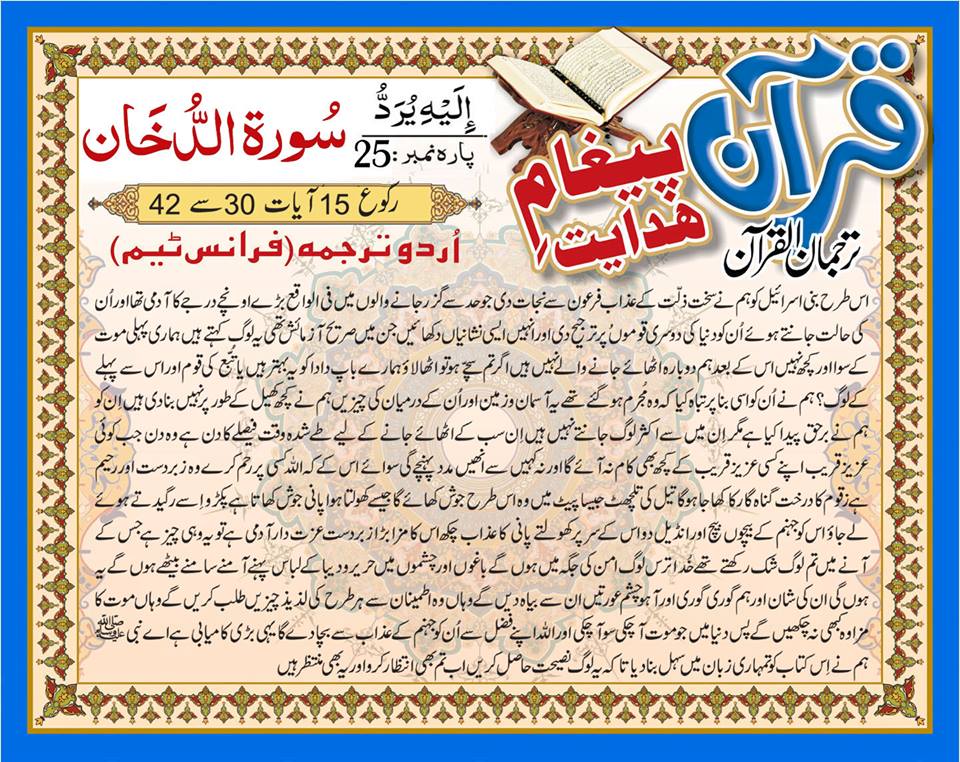 قرآن
پیغامِ
ھدایت
ترجمان القرآن
إِلَيْهِ يُرَدُّ
پارہ نمبر: 25
سُورة الدُّخَان
رکوع 15 آیات 30 سے 42
اُردو ترجمہ (فرانس ٹیم)
اس طرح بنی اسرائیل کو ہم نے سخت ذلّت کے عذاب فرعون سے نجات دی جو حد سے گزر جانے والوں میں فی الواقع بڑے اونچے درجے کا آدمی تھا اور اُن
کی حالت جانتے ہوئے اُن کو دنیا کی دوسری قوموں پر ترجیح دی اور انہیں ایسی نشانیاں دکھائیں جن میں صریح آزمائش تھی یہ لوگ کہتے ہیں ہماری پہلی موت
کے سوا اور کچھ نہیں اس کے بعد ہم دوبارہ اٹھائے جانے والے نہیں ہیں اگر تم سچے ہو تو اٹھا لاؤ ہمارے باپ دادا کو یہ بہتر ہیں یا تبع کی قوم اور اس سے پہلے
کے لوگ؟ ہم نے اُن کو اسی بنا پر تباہ کیا کہ وہ مُجرم ہو گئے تھے یہ آسمان و زمین اور اُن کے درمیان کی چیزیں ہم نے کچھ کھیل کے طور پر نہیں بنا دی ہیں ان کو
ہم نے برحق پیدا کیا ہے مگر اِن میں سے اکثر لوگ جانتے نہیں ہیں اِن سب کے اٹھائے جانے کے لیے طے شدہ وقت فیصلے کا دن ہے وہ دن جب کوئی
عزیز قریب اپنے کسی عزیز قریب کے کچھ بھی کام نہ آئے گا اور نہ کہیں سے انھیں مدد پہنچے گی سوائے اس کے کہ اللہ کسی پر رحم کرے وہ زبردست اور رحیم
ہے زقوم کا درخت گناہ گار کا کھا جا ہوگا تیل کی تلچھٹ جیسا پیٹ میں وہ اس طرح جوش کھائے گا جیسے کھولتا ہوا پانی جوش کھاتا ہے پکڑو اسے رگیدتے ہوئے
لے جاؤ اس کو جہنم کے بیچوں بیچ اور انڈیل دو اس کے سر پر کھولتے پانی کا عذاب چکھ اس کا مزا بڑا زبردست عزت دار آدمی ہے تو یہ وہی چیز ہے جس کے
آنے میں تم لوگ شک رکھتے تھے خُدا ترس لوگ امن کی جگہ میں ہوں گے باغوں اور چشموں میں حریر و دیبا کے لباس پہنے آمنے سامنے بیٹھے ہوں گے یہ
ہوں گی ان کی شان اور ہم گوری گوری اور آہو چشم عورتیں ان سے بیاہ دیں گے وہاں وہ اطمینان سے ہر طرح کی لذیذ چیزیں طلب کریں گے وہاں موت کا
مزا وہ کبھی نہ چکھیں گے پس دنیا میں جو موت آچکی سو آچکی اور اللہ اپنے فضل سے اُن کو جہنم کے عذاب سے بچا دے گا یہی بڑی کامیابی ہے اے نبی ﷺ
ہم نے اِس کتاب کو تمہاری زبان میں سہل بنا دیا تاکہ یہ لوگ نصیحت حاصل کریں اب تم بھی انتظار کرو اور یہ بھی منتظر ہیں